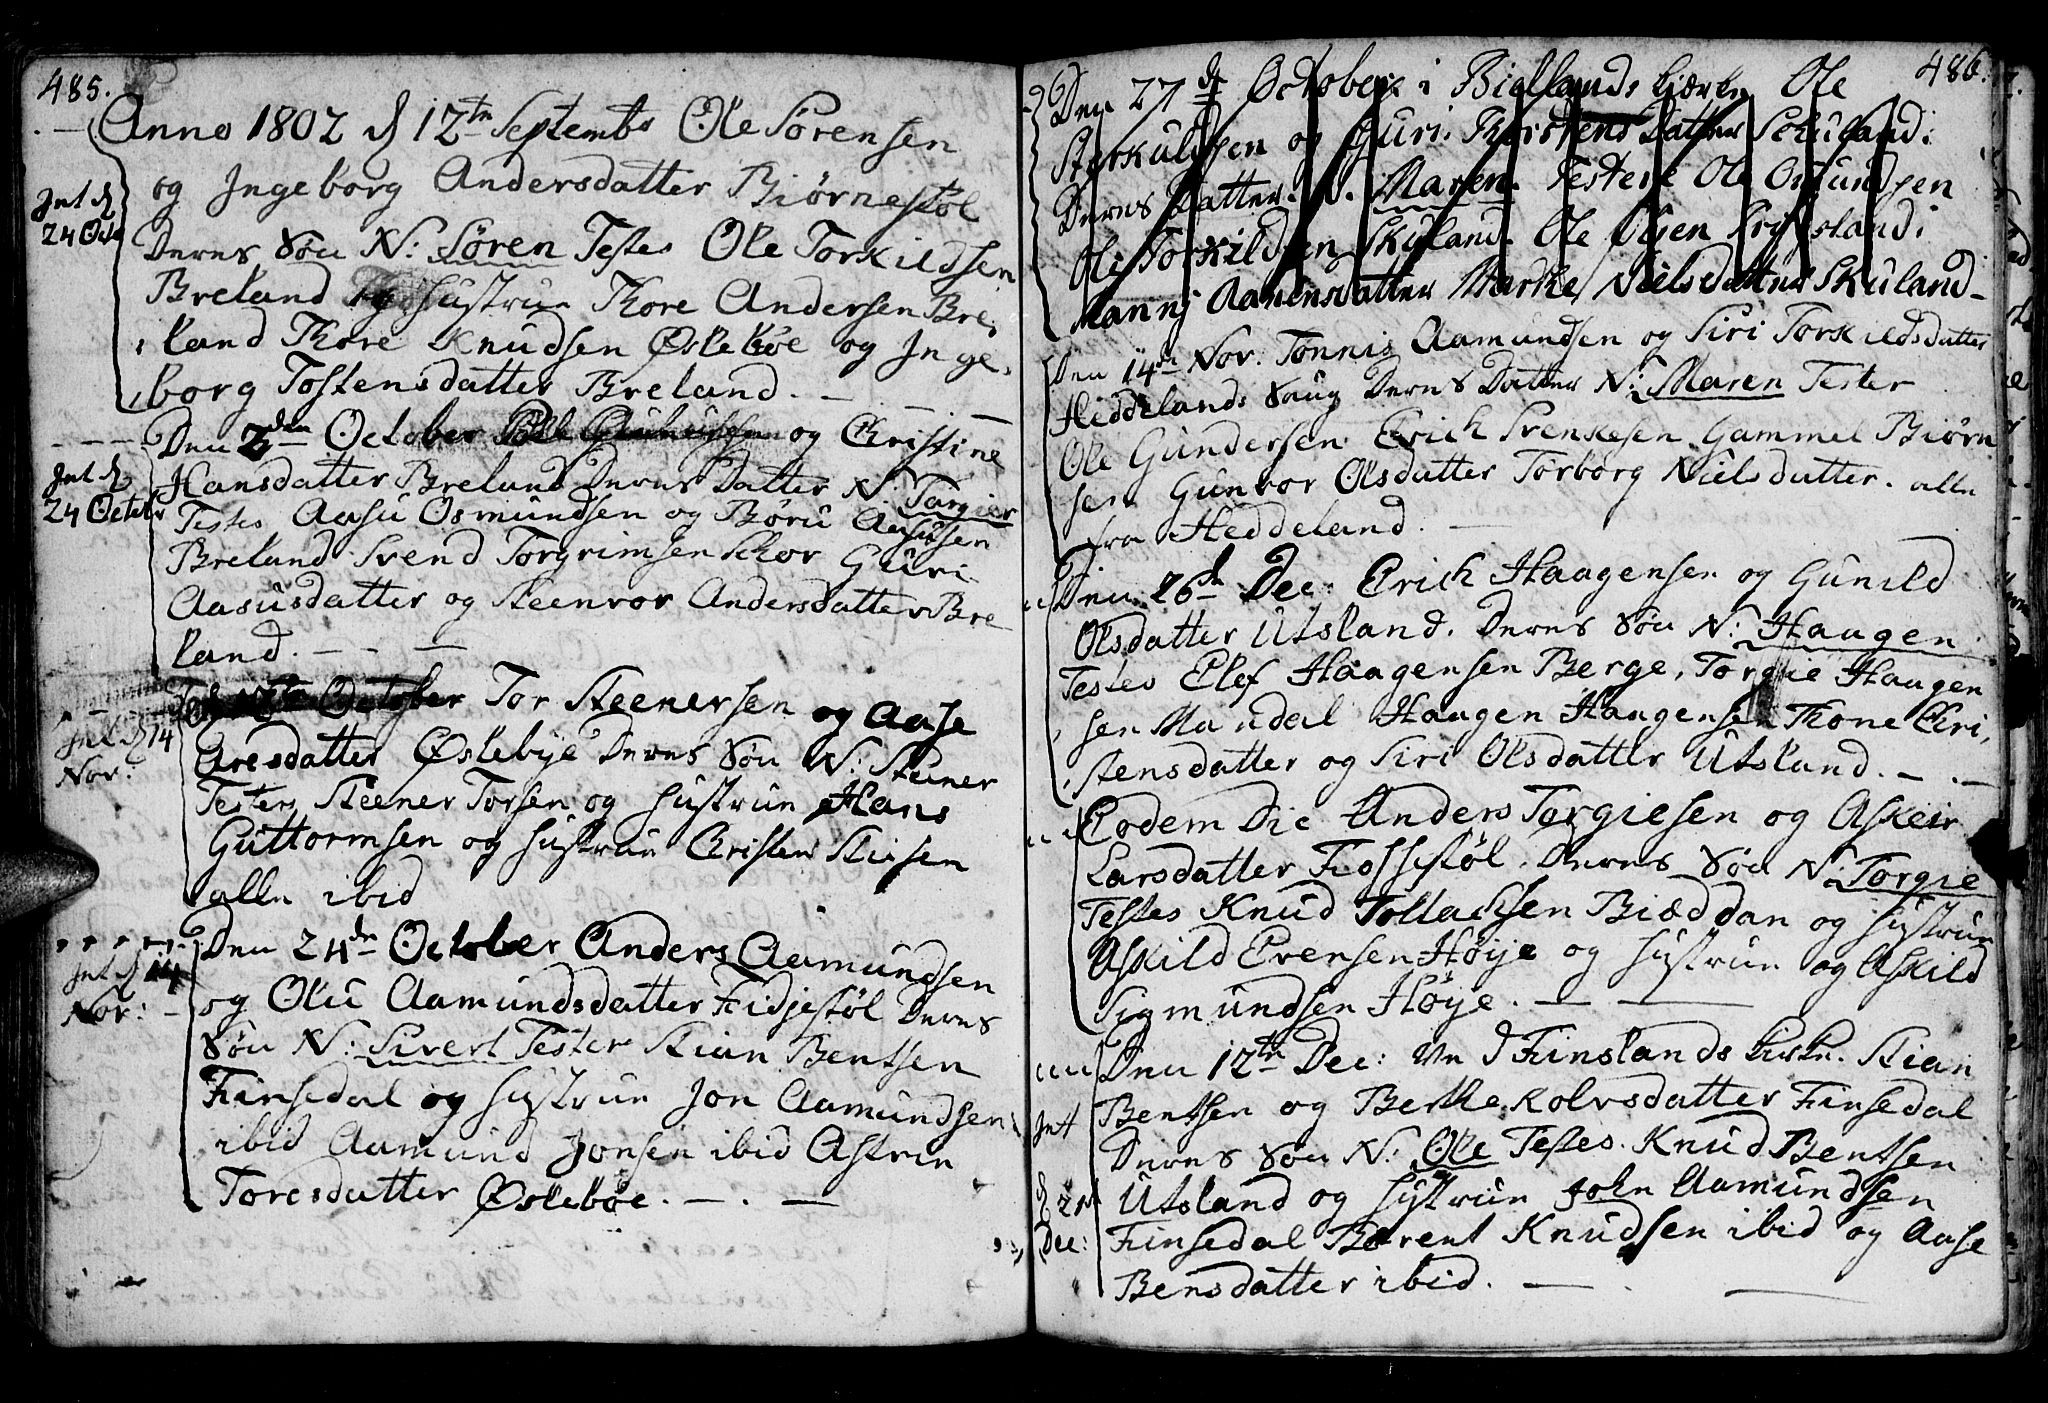 485.
Anno 1802 d 12te Septembr Ole Sörensen
og Ingeborg Andersdatter Biørnestøl
Int d
24 Octr
Deres Søn N: Sören Testes Ole Torkildsen
Breland og Hustrue Thore Andersen Bre,
land Thore Knudsen Øslebøe og Inge,
borg Tostensdatter Breland. —
Den October og Christine
Int d
24 Octobr
Hansdatter Breland Deres Datter N. Targier
Testes Aasu Osmundsen og Böru Aasusen
Breland Svend Torgrimsen Skor Guri
Aasusdatter og Steenvor Andersdatter Bre
land. — — —
October Tor Steenersen og Aase
Int d 14
Nov:
Aresdatter Øslebye Deres Søn N: Steiner
Testes Steener Torsen og Hustrue Hans
Guttormsen og Hustrue Christen Stiisen
alle ibid
Den 24de October Anders Aamundsen
Int d 14
Nov: —
og Olu Aamundsdatter Fidjestøl Deres
Søn N: Sivert Testes Stian Bentsen
Finsedal og Hustrue Jon Aamundsen
ibid Aamund Jonsen ibid Astrin
Toresdatter Øslebøe. — . —
486.
Den 27d October i Biellands kierke Ole
Sterkulfsen og Guri Thorstens Datter Schuland
Deres Datter. N. Maren. Testere Ole Osmundsen
Ole Torkildsen Skuland. Ole Olsen
Manni Aanensdatter Marthe Nielsdatter Skuland —
Den 14de Nov: Tønnis Aamundsen og Siri Torkildsdatter
Heddelands Saug Deres Datter N: Maren Tester
Ole Gundersen Erich Svenkesen Gammel Biørn
sen Gunvor Olsdatter Torborg Nielsdatter. alle
fra Heddeland. —
Den 26d Dec: Erich Haagensen og Gunild
Olsdatter Utsland. Deres Søn N: Haagen
Testes Elef Haagensen Berge, Torgie Haagen
sen Mandal Haagen Haagensen Thone Cri,
stensdatter og Siri Olsdatter Utsland. — . —
Eodem Die Anders Torgiesen og Askeir
Larsdatter Fossestøl. Deres Søn N: Torgie
Testes Knud Tollachsen Biæddan og Hustrue
Askild Evensen Høye og Hustrue og Askild
Sigmundsen Høye. — —
Den 12te Dec: Finslands kirke. Stian
Int
Bentsen og Berthe Kolvsdatter Finsedal
Deres Søn N: Ole Testes Knud Bentsen
d 21
Dec:
Utsland og Hustrue John Aamundsen
Finsedal Berent Knudsen ibid og Aase
Bensdatter ibid. — —